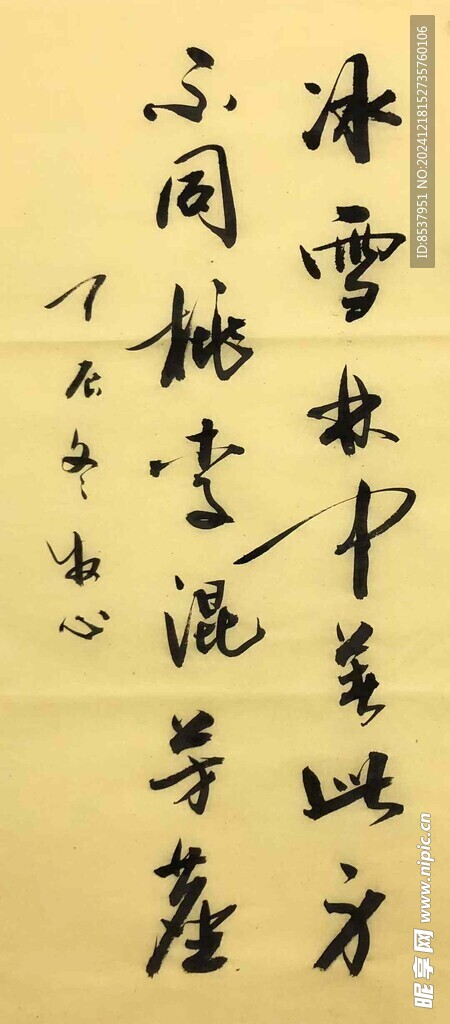 冰雪林中著此身
不同桃李混芳塵
辰冬 心
ID:8537951 NO:20241218152735760106
昵享网 www.nipic.cn